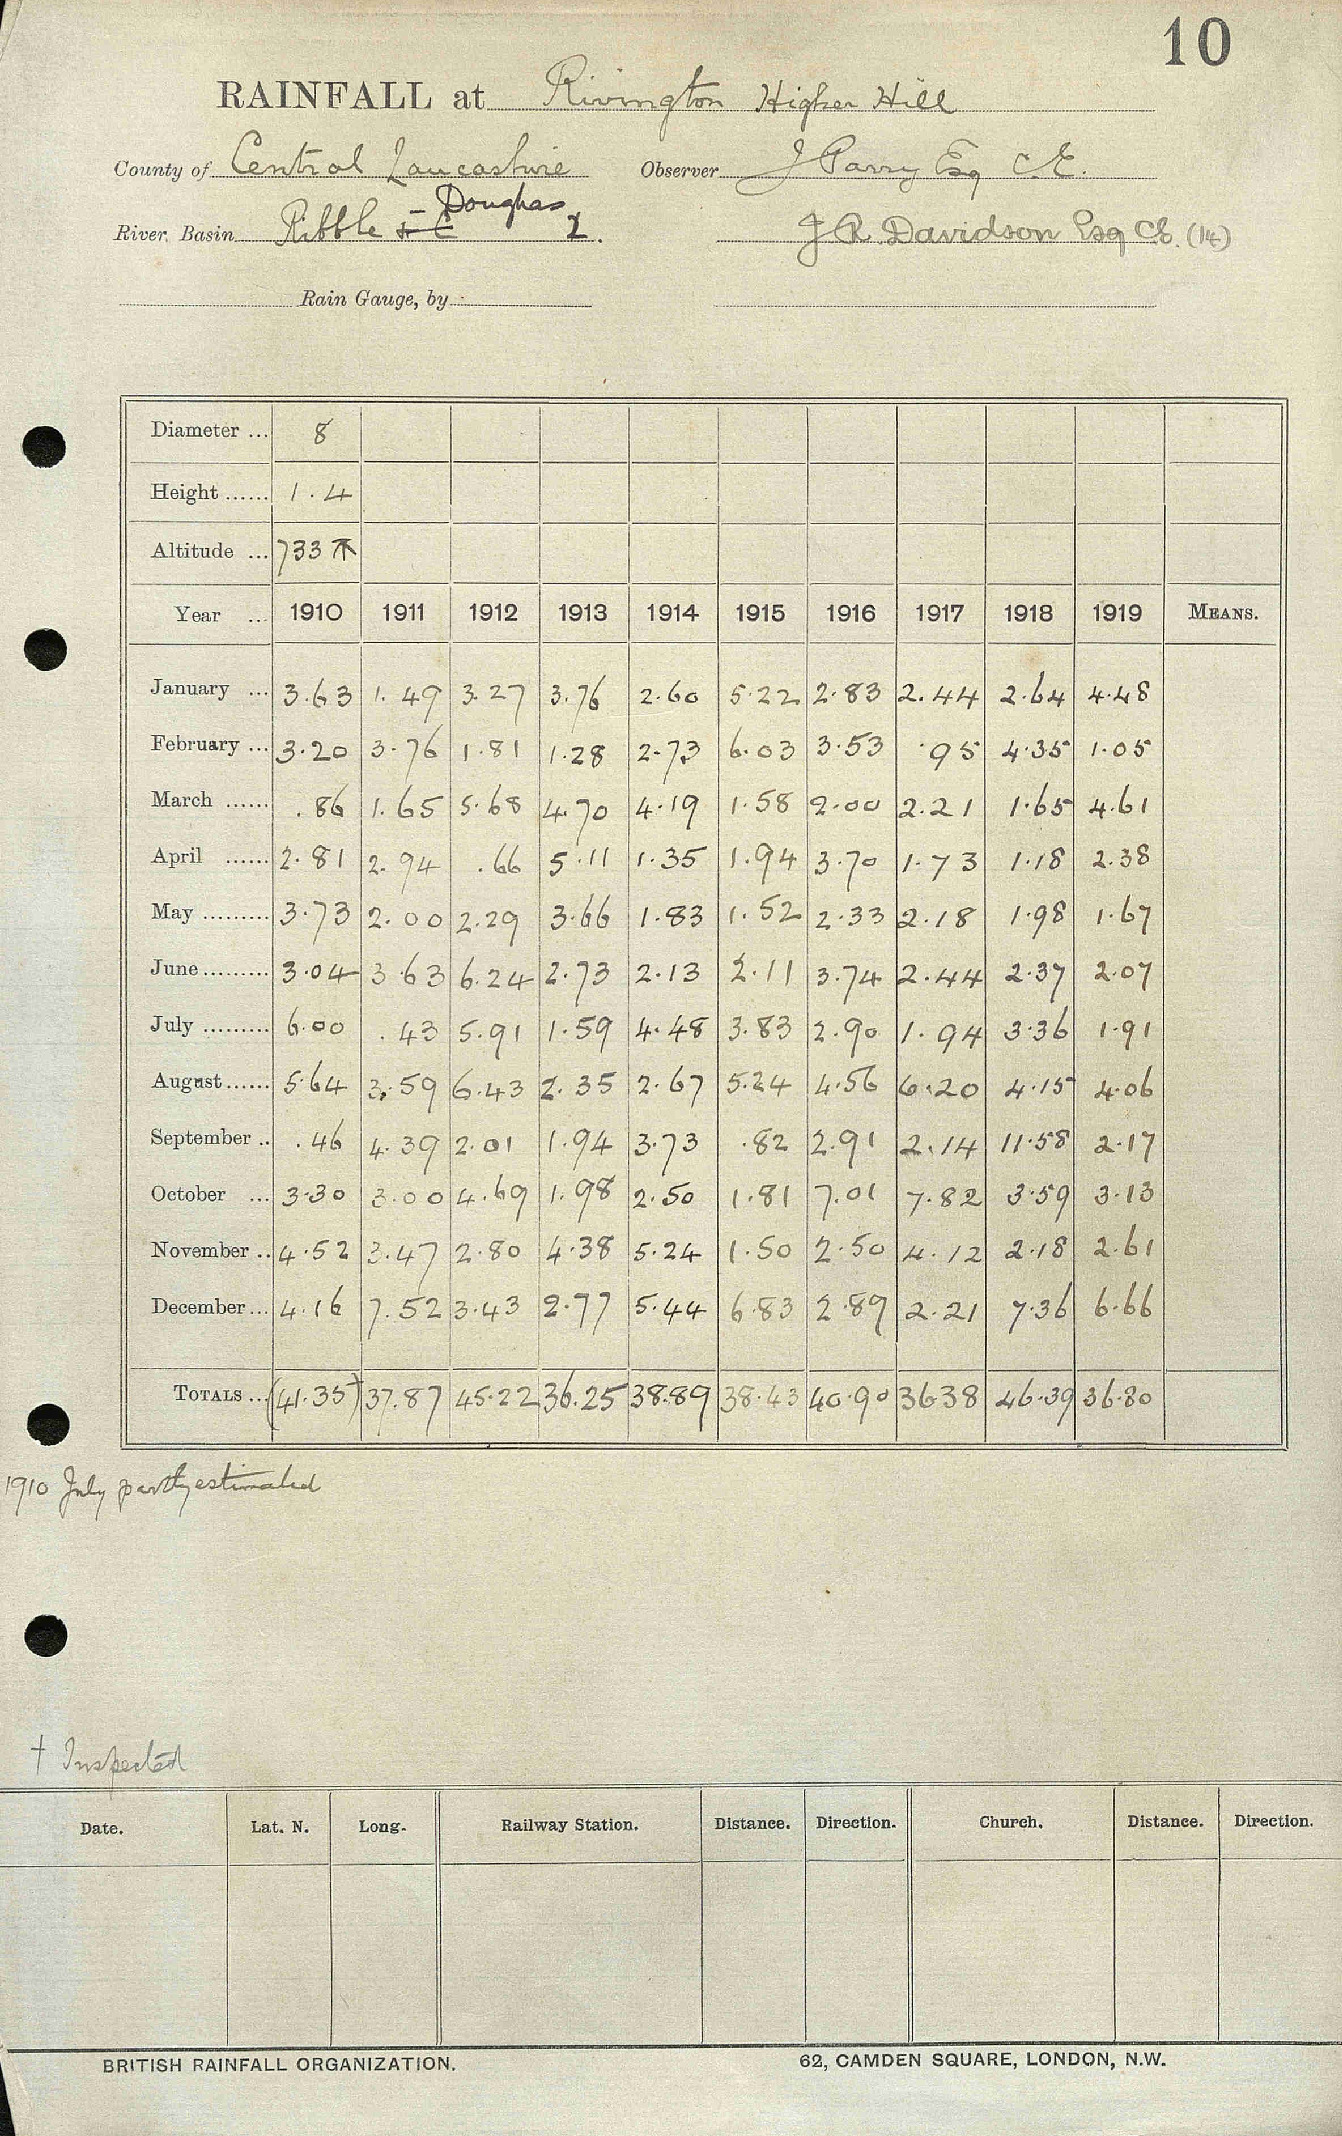 10
RAINFALL at Rivington Higher Hill
County of Central Lancashire Observer J Parry Esq C.E.
River Basin Ribble Douglas 2. J R Davidson Esq CE. (14)
Rain Gauge, by
Diameter ... 8
Height ...... 1.4
Altitude ... 733
Year ... 1910 1911 1912 1913 1914 1915 1916 1917 1918 1919 MEANS.
January ... 3.63 1.49 3.27 3.76 2.60 5.22 2.83 2.44 2.64 4.48
February ... 3.20 3.76 1.81 1.28 2.73 6.03 3.53 .95 4.35 1.05
March ...... .86 1.65 5.68 4.70 4.19 1.58 2.00 2.21 1.65 4.61
April ...... 2.81 2.94 .66 5.11 1.35 1.94 3.70 1.73 1.18 2.38
May ......... 3.73 2.00 2.29 3.66 1.83 1.52 2.33 2.18 1.98 1.67
June ......... 3.04 3.63 6.24 2.73 2.13 2.11 3.74 2.44 2.37 2.07
July ......... 6.00 .43 5.91 1.59 4.48 3.83 2.90 1.94 3.36 1.91
August ...... 5.64 3.59 6.43 2.35 2.67 5.24 4.56 6.20 4.15 4.06
September .. .46 4.39 2.01 1.94 3.73 .82 2.91 2.14 11.58 2.17
October ... 3.30 3.00 4.69 1.98 2.50 1.81 7.01 7.82 3.59 3.13
November .. 4.52 3.47 2.80 4.38 5.24 1.50 2.50 4.12 2.18 2.61
December ... 4.16 7.52 3.43 2.77 5.44 6.83 2.89 2.21 7.36 6.66
TOTALS ... (41.35)† 37.87 45.22 36.25 38.89 38.43 40.90 36.38 46.39 36.80
1910 July partly estimated
† Inspected
Date. Lat. N. Long. Railway Station. Distance. Direction. Church. Distance. Direction.
BRITISH RAINFALL ORGANIZATION. 62, CAMDEN SQUARE, LONDON, N.W.